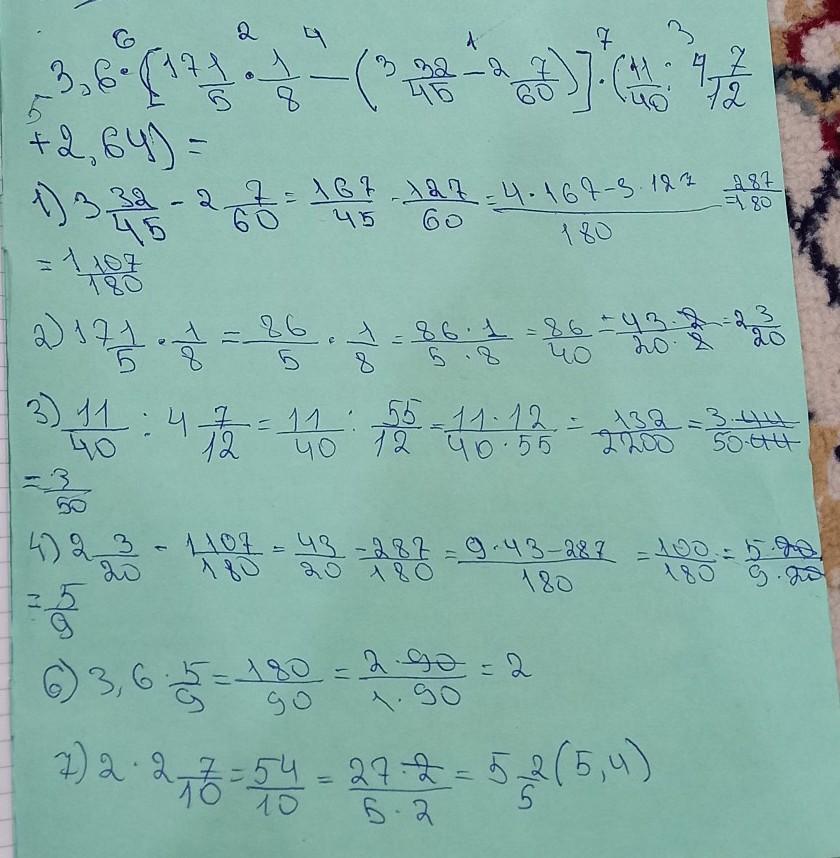 6 2 4 1 7 3
3,6 · [17 1/5 · 1/8 — (3 32/45 - 2 7/60)] · (11/40 : 4 7/12
5
+ 2,64) =
1) 3 32/45 - 2 7/60 = 167/45 - 127/60 = (4·167-3·127)/180 = 287/180
= 1 107/180
2) 17 1/5 · 1/8 = 86/5 · 1/8 = (86·1)/(5·8) = 86/40 = (43·2)/(20·2) = 2 3/20
3) 11/40 : 4 7/12 = 11/40 : 55/12 = (11·12)/(40·55) = 132/2200 = (3·44)/(50·44)
= 3/50
4) 2 3/20 - 1 107/180 = 43/20 - 287/180 = (9·43-287)/180 = 100/180 = (5·20)/(9·20)
= 5/9
6) 3,6 · 5/9 = 180/90 = (2·90)/(1·90) = 2
7) 2 · 2 7/10 = 54/10 = (27·2)/(5·2) = 5 2/5 (5,4)